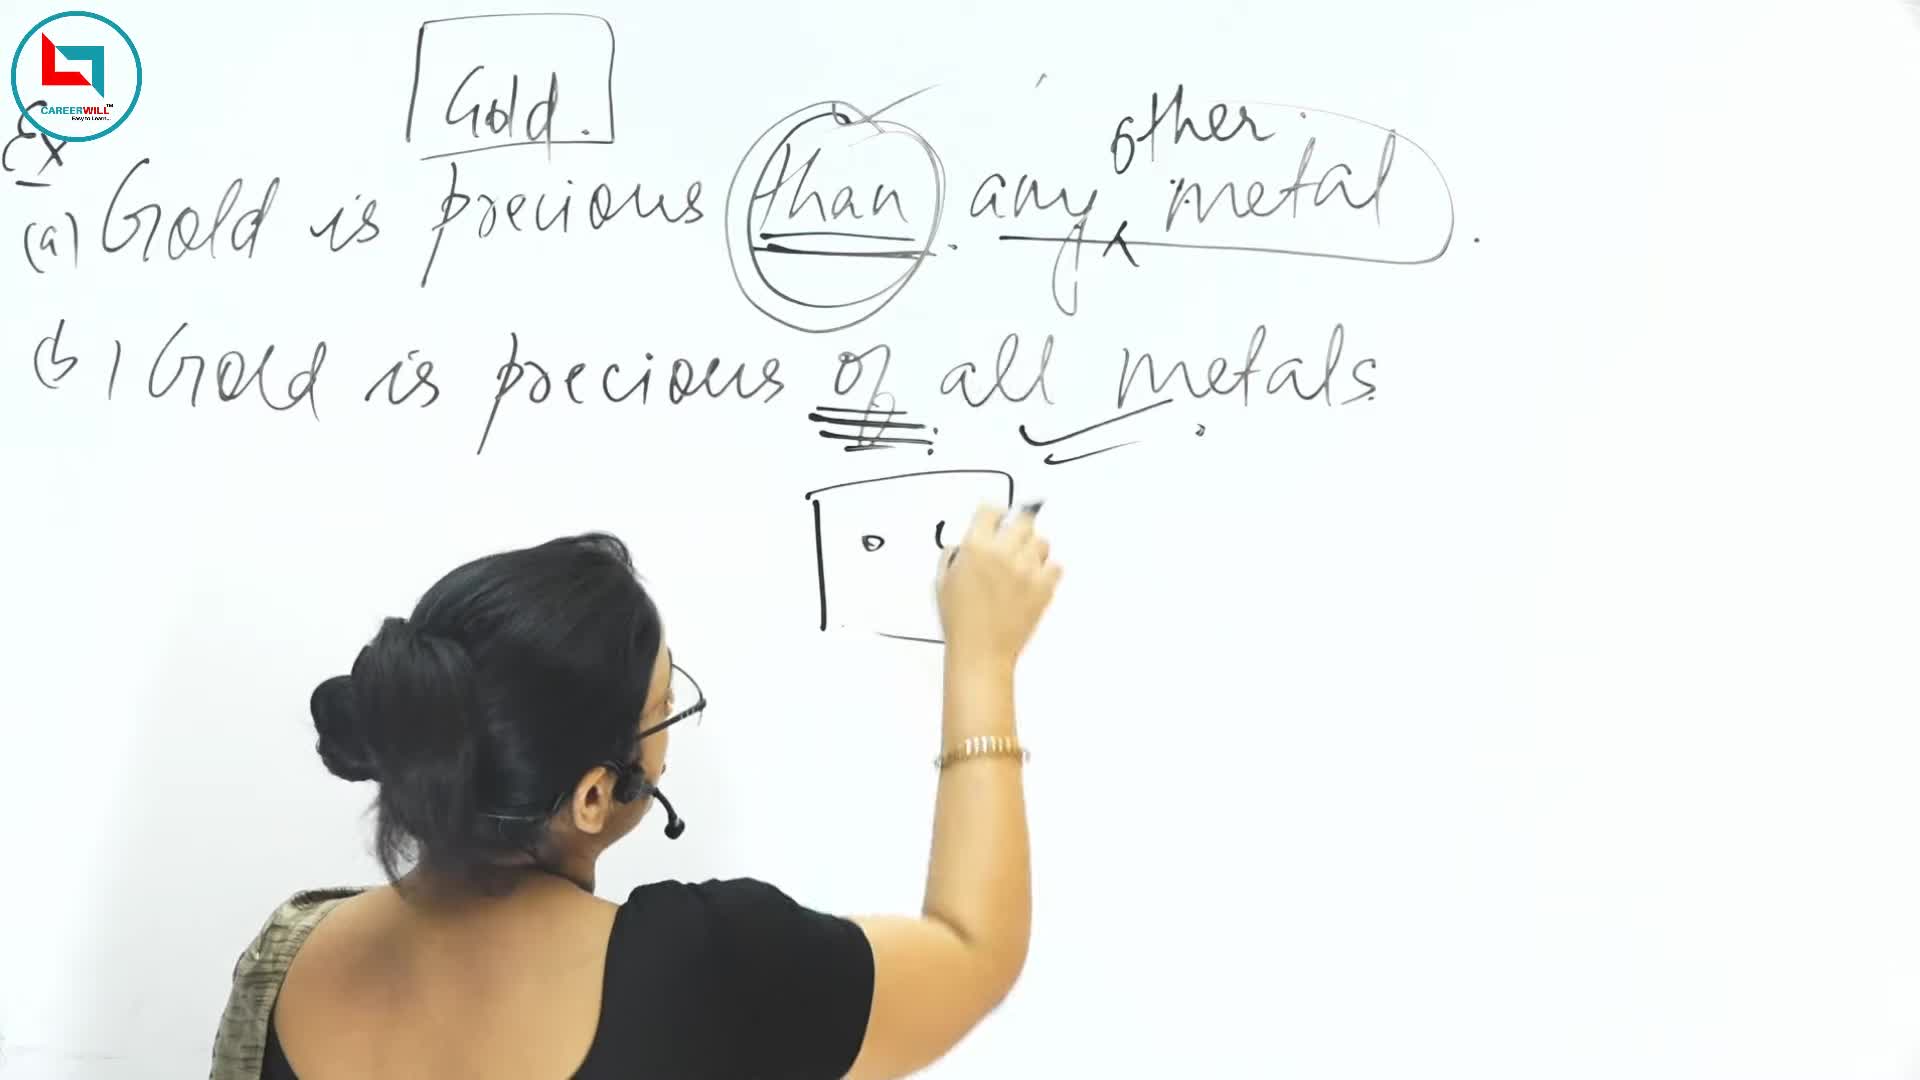 CAREERWILL™
Easy to Learn...
Ex
Gold.
other
(a) Gold is precious than any metal.
(b) Gold is precious of all metals.